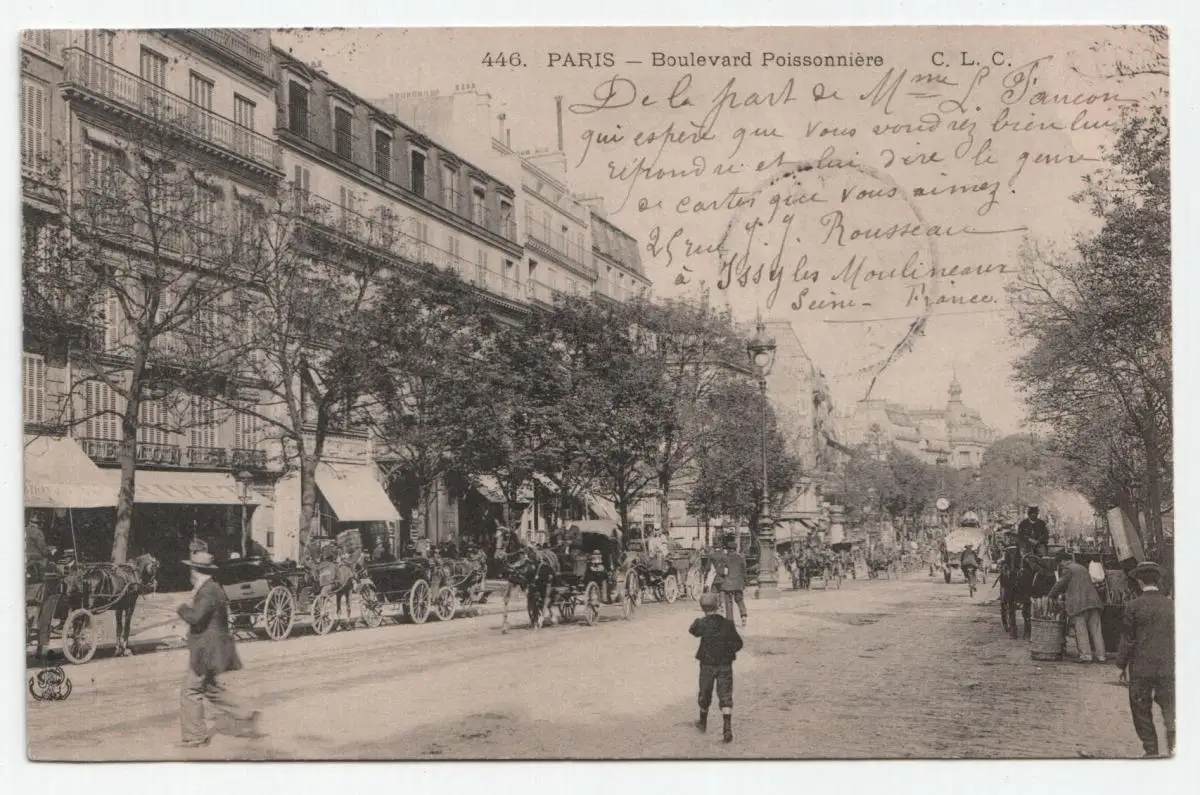 446. PARIS – Boulevard Poissonnière C. L. C.
De la part de Mme L. Fancon
qui espère que vous voudrez bien lui
répondre et lui dire le genre
de cartes que vous aimez.
25 rue J. J. Rousseau
à Issy les Moulineaux
Seine - France.